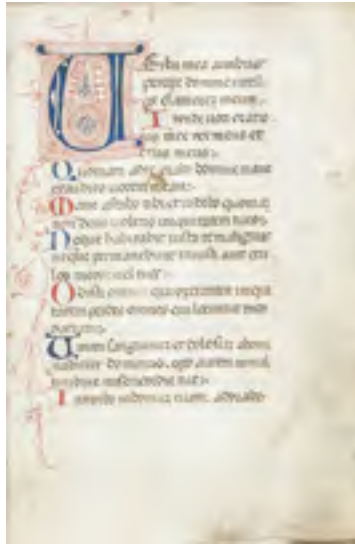 Verba mea auribus
percipe domine intelli
ge clamorem meum.
Intende voci oratio
nis mee rex meus et
deus meus.
Quoniam ad te orabo domine mane
exaudies vocem meam.
Mane astabo tibi et videbo quoniam
non deus volens iniquitatem tu es.
Neque habitabit iuxta te malignus
neque permanebunt iniusti ante ocu
los tuos
Odisti omnes qui operantur iniqui
tatem perdes omnes qui loquuntur men
dacium.
Virum sanguinum et dolosum abomi
nabitur dominus, ego autem in mul
titudine misericordie tue.
Introibo in domum tuam, adorabo